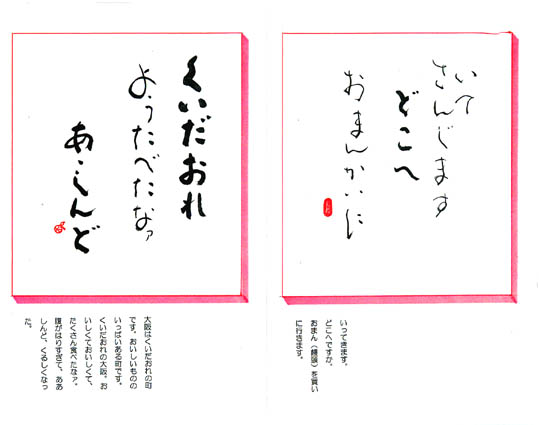 いて
さんじます
どこへ
おまんかいに
いってきます。
どこへですか。
おまん（饅頭）を買い
に行きます。
くいだおれ
ようたべたなァ
あゝしんど
大阪はくいだおれの町
です。おいしいものの
いっぱいある町です。
くいだおれの大阪。お
いしくておいしくて、
たくさん食べたなァ。
腹がはりすぎて、ああ
しんど、くるしくなっ
た。